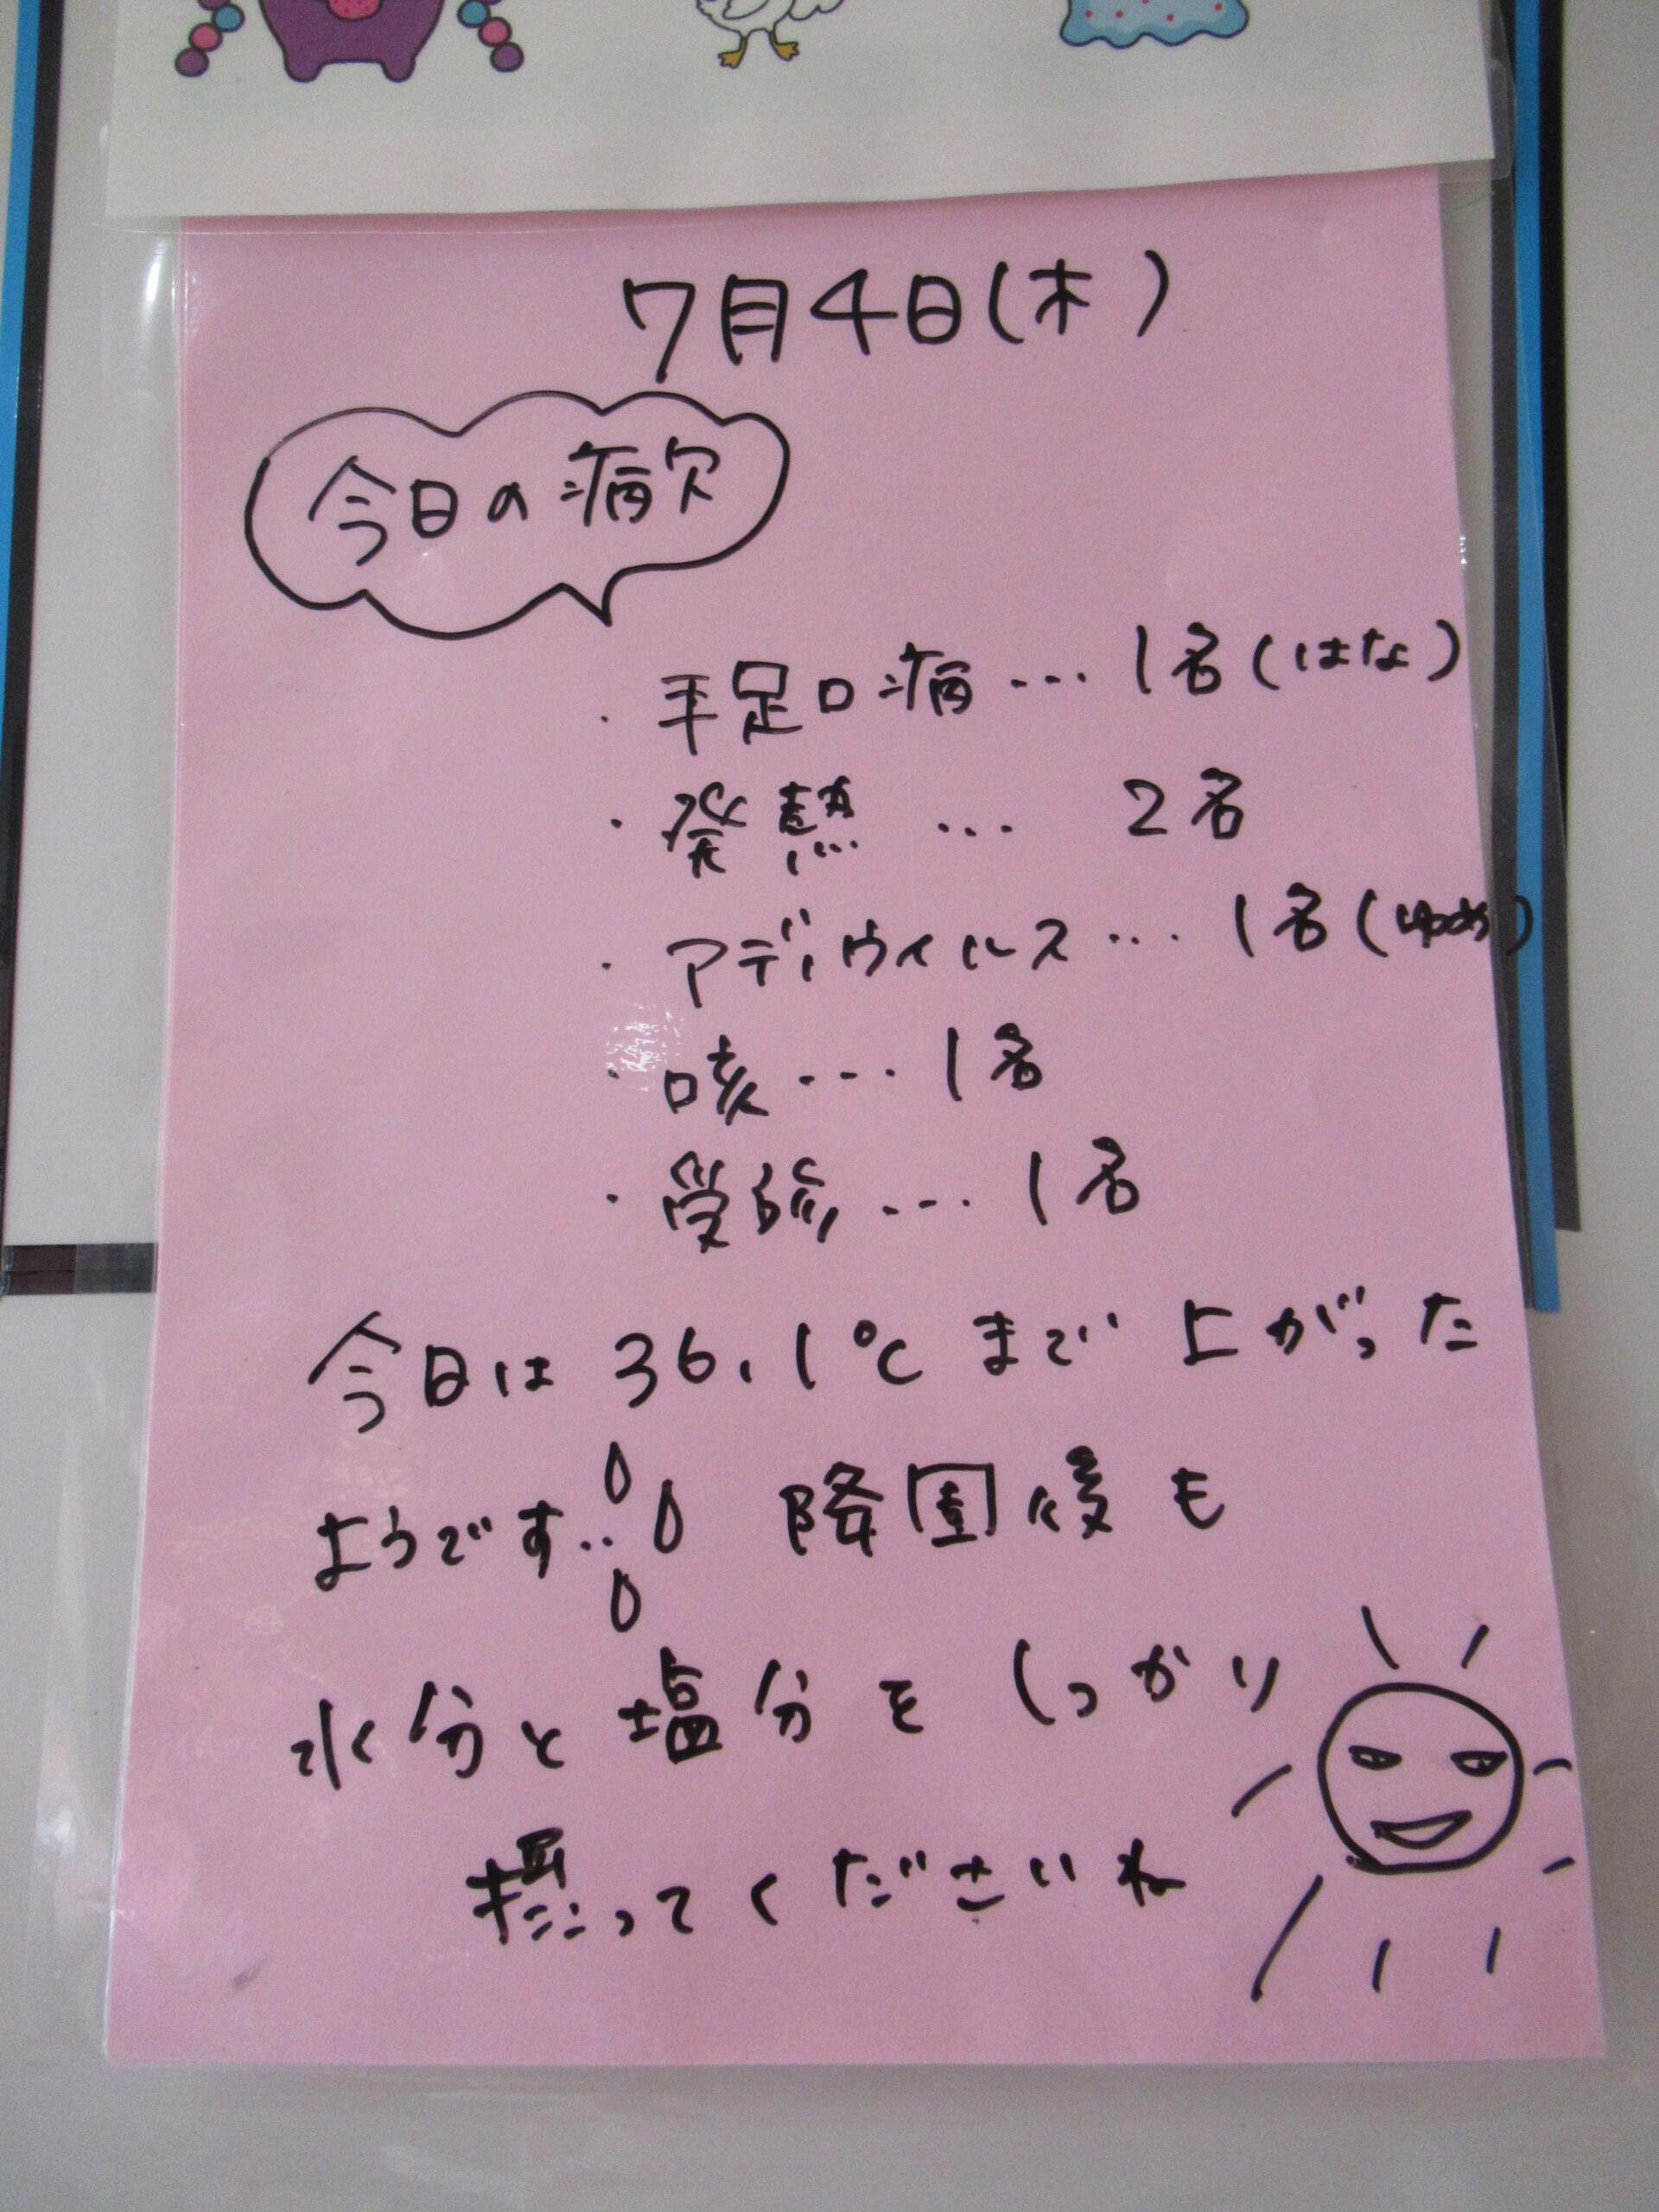 7月4日(木)
今日の病欠
・手足口病…1名(はな)
・発熱 … 2名
・アデノウイルス…1名(ゆめ)
・咳…1名
・受診…1名
今日は36.1℃まで上がった
ようです‥ 降園後も
水分と塩分をしっかり
摂ってくださいね